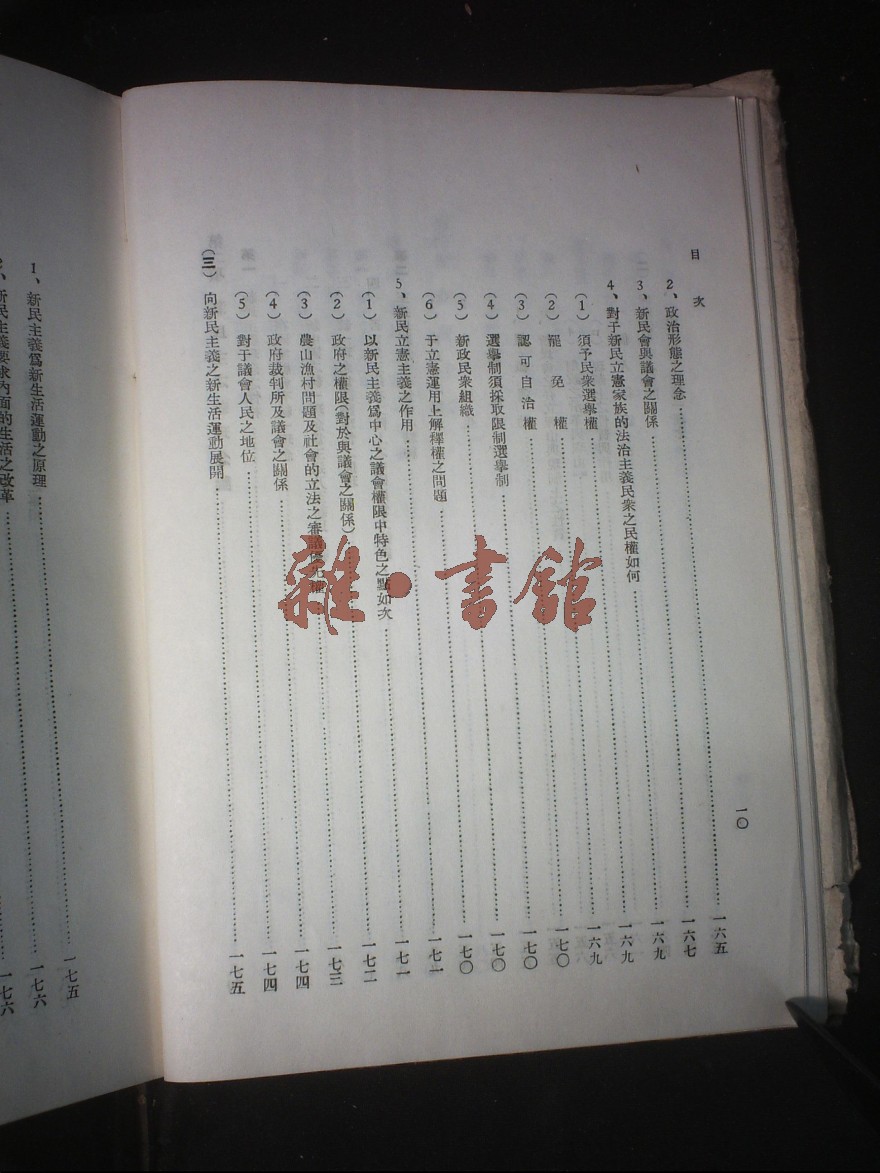 目次
2、政治形態之理念……一六五
3、新民會與議會之關係……一六七
4、對于新民立憲家族的法治主義民衆之民權如何……一六九
(1)須予民衆選舉權……一六九
(2)罷免權……一六九
(3)認可自治權……一七〇
(4)選舉制須採取限制選舉制……一七〇
(5)新政民衆組織……一七〇
(6)于立憲運用上解釋權之問題……一七〇
5、新民立憲主義之作用……一七一
(1)以新民主義爲中心之議會權限中特色之點如次……一七一
(2)政府之權限(對於與議會之關係)……一七二
(3)農山漁村問題及社會的立法之審議……一七三
(4)政府裁判所及議會之關係……一七四
(5)對于議會人民之地位……一七四
(三)向新民主義之新生活運動展開……一七五
一〇
1、新民主義爲新生活運動之原理……一七五
新民主義要求內面的生活之改革……一七六
一七六
雜·書館